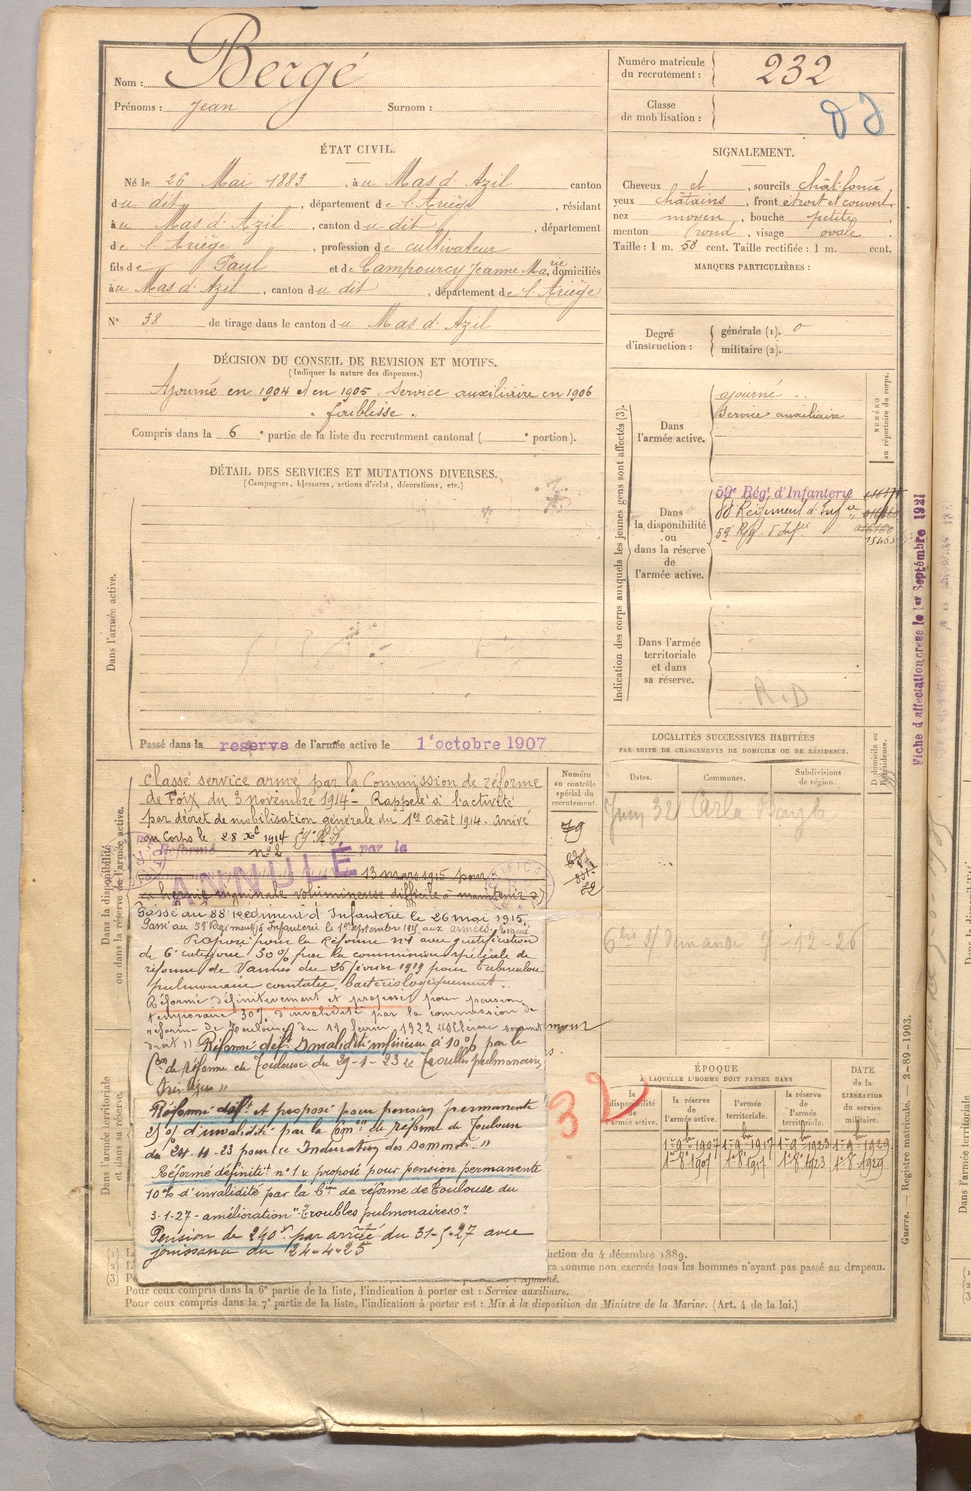 Nom : Bergé
Prénoms : Jean Surnom :
Numéro matricule du recrutement : 232
Classe de mobilisation :
ÉTAT CIVIL.
Né le 26 Mai 1883, à u Mas d'Azil canton
du dit, département de l'Ariège, résidant
à u Mas d'Azil, canton du dit, département
de l'Ariège, profession de cultivateur
fils de Paul et de Campourcy Jeanne Marie, domiciliés
à u Mas d'Azil, canton du dit, département de l'Ariège
N° 38 de tirage dans le canton du Mas d'Azil
SIGNALEMENT.
Cheveux et, sourcils chât. foncé,
yeux châtains, front étroit et couvert,
nez moyen, bouche petite,
menton rond, visage ovale.
Taille : 1 m. 58 cent. Taille rectifiée : 1 m. cent.
MARQUES PARTICULIÈRES :
Degré d'instruction : générale (1). 0
militaire (2).
DÉCISION DU CONSEIL DE REVISION ET MOTIFS.
(Indiquer la nature des dispenses.)
Ajourné en 1904 et en 1905. Service auxiliaire en 1906
" faiblesse "
Compris dans la 6e partie de la liste du recrutement cantonal ( e portion).
DÉTAIL DES SERVICES ET MUTATIONS DIVERSES.
(Campagnes, blessures, actions d'éclat, décorations, etc.)
Dans l'armée active.
Passé dans la reserve de l'armée active le 1er octobre 1907
Indication des corps auxquels les jeunes gens sont affectés (3).
NUMÉRO au répertoire du corps.
Dans l'armée active.
ajourné
Service auxiliaire
Dans la disponibilité ou dans la réserve de l'armée active.
59e Rég. d'Infanterie
88 Régiment d'Infie
59 Rég. d'Infie 15463
Dans l'armée territoriale et dans sa réserve.
R.D
Fiche d'affectation créée le 1er Septembre 1921
LOCALITÉS SUCCESSIVES HABITÉES
PAR SUITE DE CHANGEMENTS DE DOMICILE OU DE RÉSIDENCE.
Dates. Communes. Subdivisions de région.
D. domicile ou R. résidence.
Juin 32 Carla Bayle
Dans la disponibilité ou dans la réserve de l'armée active.
Numéro au contrôle spécial du recrutement.
79
Classé service armé par la Commission de réforme
de Foix du 3 novembre 1914 - Rappelé à l'activité
par décret de mobilisation générale du 1er août 1914. Arrivé
au Corps le 28 Xbre 1914
Réformé n° 2 par la
ANNULÉ
13 mars 1915 pour
hernie inguinale volumineuse difficile à maintenir
Passé au 88e Régiment d'Infanterie le 26 mai 1915.
Passé au 59e Régiment d'Infanterie le 1er septembre 1915 aux armées.
Proposé pour la Réforme n°1 avec gratification
de 6e catégorie 30% par la commission spéciale de
réforme de Vannes du 26 février 1919 pour Tuberculose
pulmonaire constatée bactériologiquement.
Réformé définitivement et proposé pour pension
temporaire 30% d'invalidité par la commission de
réforme de Toulouse du 11 février 1922
Réformé déft Invalidité inférieure à 10% par la
Con de réforme de Toulouse du 29-1-23 Troubles pulmonaires
très légers"
Réformé déft et proposé pour pension permanente
25% d'invalidité par la Comon de réforme de Toulouse
du 24-4-25 pour Induration des sommets "
Réformé définitt n°1 & proposé pour pension permanente
10% d'invalidité par la Con de réforme de Toulouse du
3-1-27 - amélioration "Troubles pulmonaires".
Pension de 240f par arrêté du 31-5-27 avec
jouissance du 24-4-25
32
Dans l'armée territoriale et dans sa réserve.
ÉPOQUE
À LAQUELLE L'HOMME DOIT PASSER DANS
DATE de la LIBÉRATION du service militaire.
disponibilité de l'armée active. la réserve de l'armée active. l'armée territoriale. la réserve de l'armée territoriale.
1er 8bre 1907 1er 8bre 1923 1er 8bre 1929
Guerre. — Registre matricule. — 2-89-1903.
(1)
(2)
(3)
uction du 4 décembre 1889.
ra comme non exercés tous les hommes n'ayant pas passé au drapeau.
: ajourné.
Pour ceux compris dans la 6e partie de la liste, l'indication à porter est : Service auxiliaire.
Pour ceux compris dans la 7e partie de la liste, l'indication à porter est : Mis à la disposition du Ministre de la Marine. (Art. 4 de la loi.)